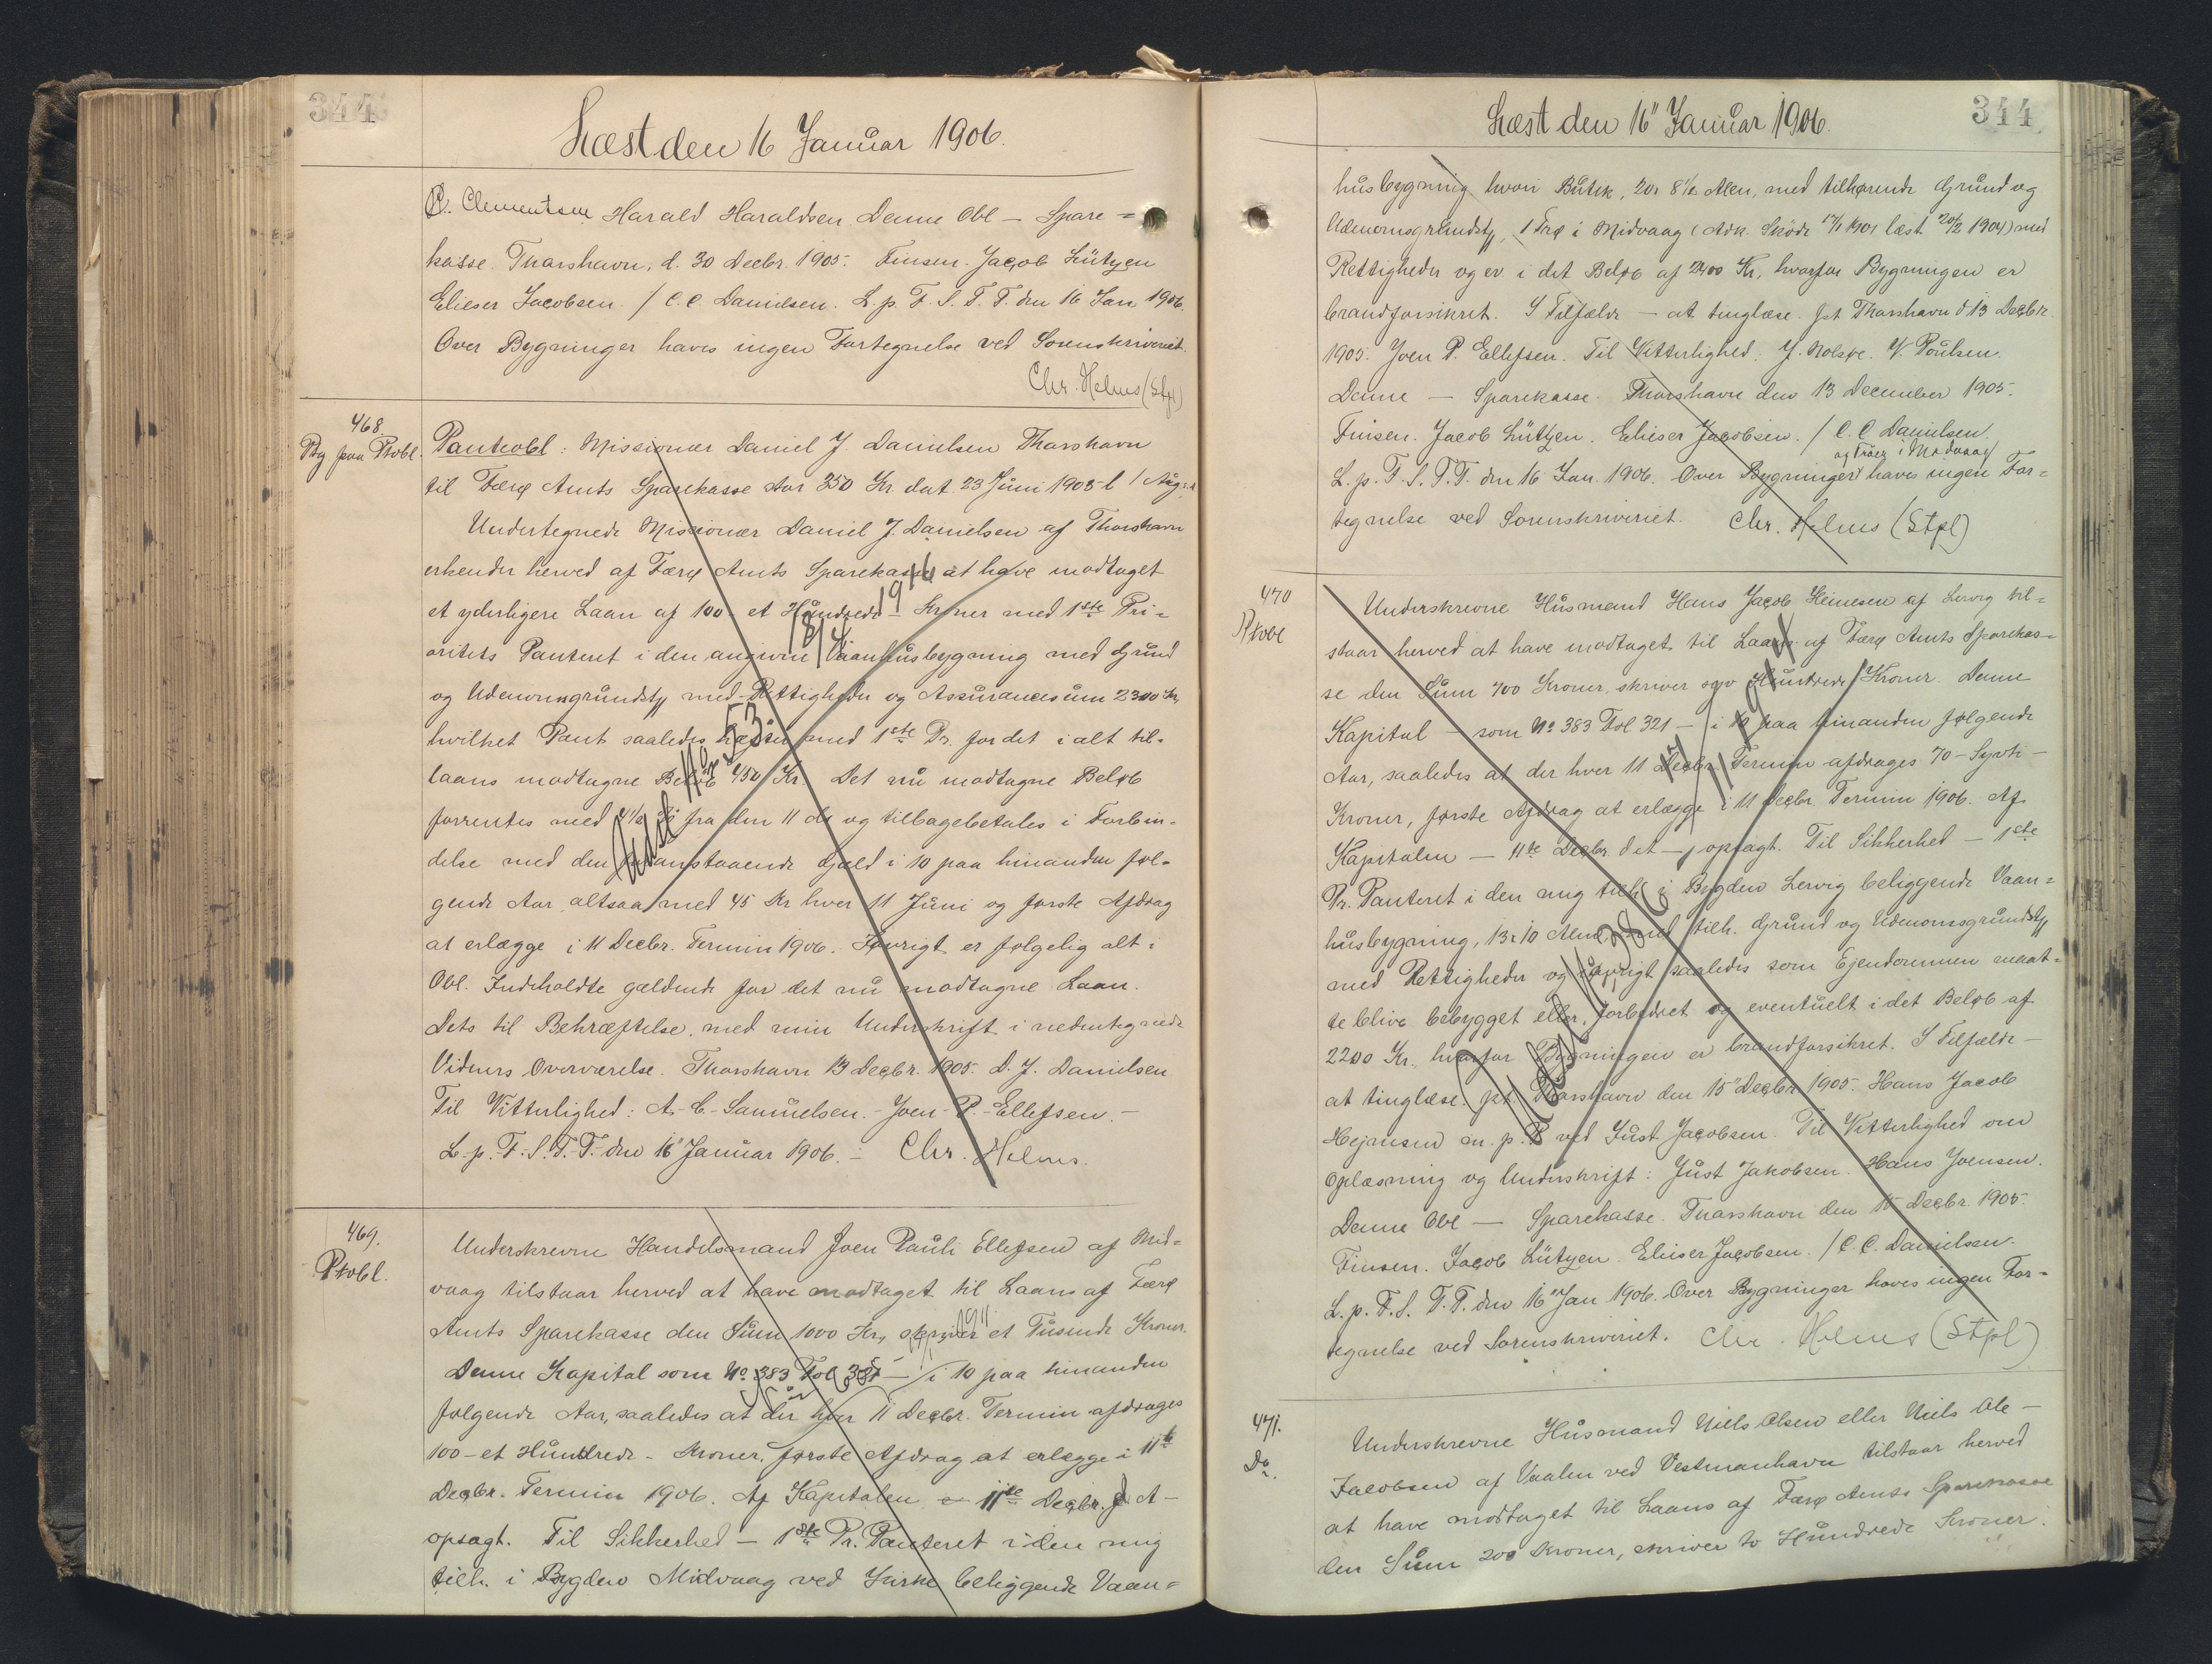 344
Læst den 16 Januar 1906.
P. Clementsen Harald Haraldsen. Denne Obl — Spare=
kasse. Thorshavn, d. 30 Decbr. 1905. Finsen. Jacob Lützen
Elieser Jacobsen. / C. C. Danielsen. L. p. F. S. T. T. den 16 Jan 1906.
Over Bygninger haves ingen Fortegnelse ved Sorenskriveriet.
Chr. Helms (Stpl)
468.
Paa Ptobl.
Panteobl: Missionær Daniel J. Danielsen Thorshavn
til Færø Amts Sparekasse for 350 Kr dat. 23 Juni 1905 l 1 Aug.
Undertegnede Missionær Daniel J. Danielsen af Thorshavn
erkender herved af Færø Amts Sparekasse at have modtaget
et yderligere Laan af 100 - et Hundrede - Kroner med 1ste Pri=
oritets Panteret i den angivne Vaanhusbygning med Grund
og Udenomsgrundst med Rettigheder og Assurancesum 2300 Kr,
hvilket Pant saaledes hæfter med 1ste Pr. for det i alt til-
laans modtagne Beløb 450 Kr. Det nu modtagne Beløb
forrentes med 4½ % fra den 11 ds og tilbagebetales i Forbin-
delse med den foranstaaende Gæld i 10 paa hinanden føl-
gende Aar, altsaa med 45 Kr hver 11 Juni og første Afdrag
at erlægge i 11 Decbr. Termin 1906. Iøvrigt er følgelig alt i
Obl. Indeholdte gældende for det nu modtagne Laan.
Dets til Bekræftelse med min Underskrift i nedentegnede
Vidners Overværelse. Thorshavn 13 Decbr. 1905. D. J. Danielsen
Til Vitterlighed: A. C. Samuelsen. - Joen - P. - Ellefsen. -
L. p. F. S. T. T. den 16 Januar 1906. - Chr. Helms.
469.
Ptobl.
Underskrevne Handelsmand Joen Pauli Ellefsen af Mid=
vaag tilstaar herved at have modtaget til Laans af Færø
Amts Sparekasse den Sum 1000 Kr, skriver et Tusinde Kroner.
Denne Kapital som No 383 Fol 321 — i 10 paa hinanden
følgende Aar, saaledes at der hver 11 Decbr. Termin afdrages
100 - et Hundrede - Kroner, første Afdrag at erlægge i 11te
Decbr. Termin 1906. Af Kapitalen — 11te Decbr. d. A —
opsagt. Til Sikkerhed — 1ste Pr. Panteret i den mig
tilh. i Bygden Midvaag ved Kirke beliggende Vaan=
344
Læst den 16" Januar 1906.
husbygning hvori Butik, 20 x 8½ Alen, med tilhørende Grund og
Udenomsgrundst, i Trø i Midvaag (Adk. Skøde 1901 læst 1904) med
Rettigheder og ev. i det Beløb af 2400 Kr, hvorfor Bygningen er
brandforsikret. I Tilfælde — at tinglæse. pt Thorshavn d 13 Decbr.
1905. Joen P. Ellefsen. Til Vitterlighed. J. Nolsøe. V. Poulsen.
Denne — Sparekasse. Thorshavn den 13 December 1905.
Finsen. Jacob Lützen. Elieser Jacobsen. / C. C. Danielsen.
og Trøer i Midvaag
L. p. F. S. T. T. den 16 Jan. 1906. Over Bygninger haves ingen For=
tegnelse ved Sorenskriveriet. Chr. Helms (Stpl)
470
Ptobl
Underskrevne Husmand Hans Jacob Heinesen af Lervig til=
staar herved at have modtaget til Laans af Færø Amts Sparekas=
se den Sum 700 Kroner, skriver syv Hundrede Kroner. Denne
Kapital — som No 383 Fol 321 — i 10 paa hinanden følgende
Aar, saaledes at der hver 11 Decbr. Termin afdrages 70 - Syvti -
Kroner, første Afdrag at erlægge i 11 Decbr. Termin 1906. Af
Kapitalen — 11te Decbr. det — opsagt. Til Sikkerhed — 1ste
Pr. Panteret i den mig tilh. i Bygden Lervig beliggende Vaan=
husbygning, 13 x 10 Alen, med tilh. Grund og Udenomsgrundst
med Rettigheder og iøvrigt saaledes som Ejendommen maat=
te blive bebygget eller forbedret og eventuelt i det Beløb af
2200 Kr. hvorfor Bygningen er brandforsikret. I Tilfælde —
at tinglæse. pt. Thorshavn den 15" Decbr 1905. Hans Jacob
Hejnesen m. p. P ved Just Jacobsen. Til Vitterlighed om
Oplæsning og Underskrift: Just Jakobsen. Hans Joensen.
Denne Obl — Sparekasse. Thorshavn den 15 Decbr. 1905.
Finsen. Jacob Lützen. Elieser Jacobsen. / C. C. Danielsen.
L. p. F. S. T. T. den 16" Jan 1906. Over Bygninger haves ingen For=
tegnelse ved Sorenskriveriet. Chr. Helms (Stpl)
471.
Do.
Underskrevne Husmand Niels Olsen eller Niels Ole —
Jacobsen af Vaalen ved Vestmanhavn tilstaar herved
at have modtaget til Laans af Færø Amts Sparekasse
den Sum 200 Kroner, skriver to Hundrede Kroner.